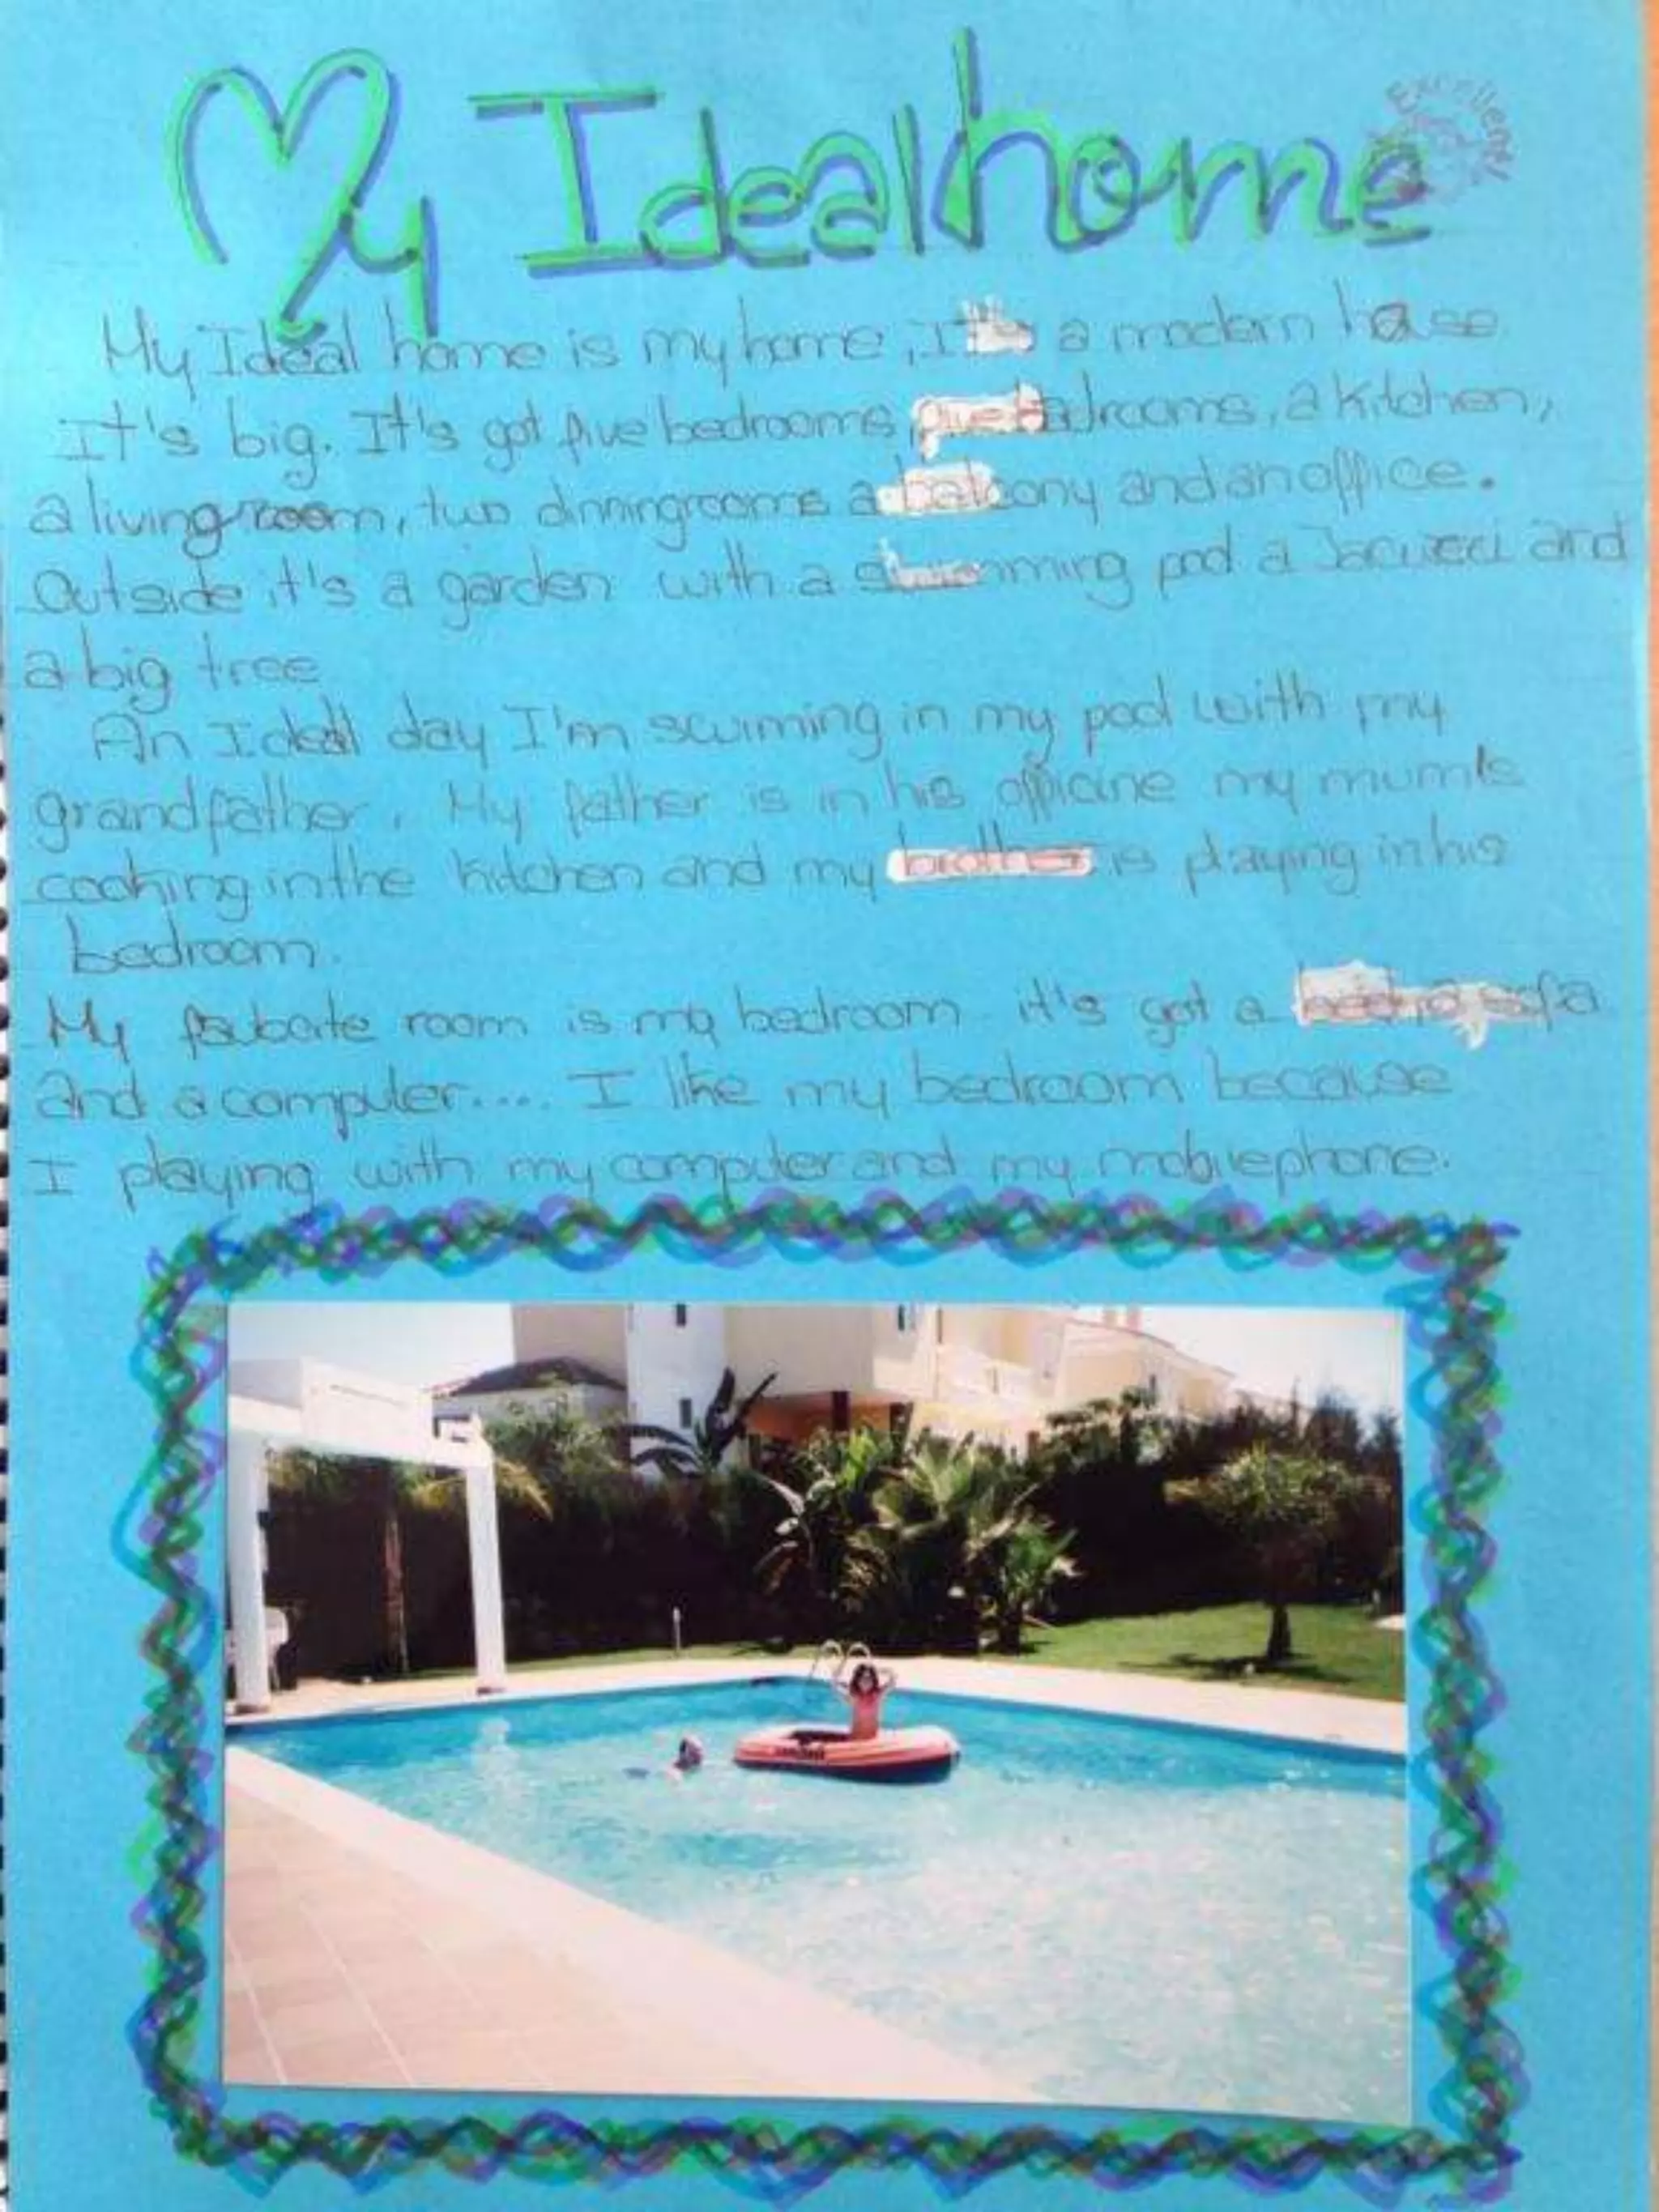 My Ideal home
Excellent
My Ideal home is my home, It's a modern house
It's big. It's got five bedrooms, five badrooms, a kitchen,
a livingroom, two dinningrooms a balcony and an office.
Outside it's a garden with a swimming pool a Jacuzzi and
a big tree
An Ideall day I'm swiming in my pool with my
grandfather. My father is in his officine my mum's
cooking in the kitchen and my brother is playing in his
bedroom.
My fauborite room is my bedroom it's got a bed, a sofa
and a computer.... I like my bedroom because
I playing with my computer and my mobilephone.